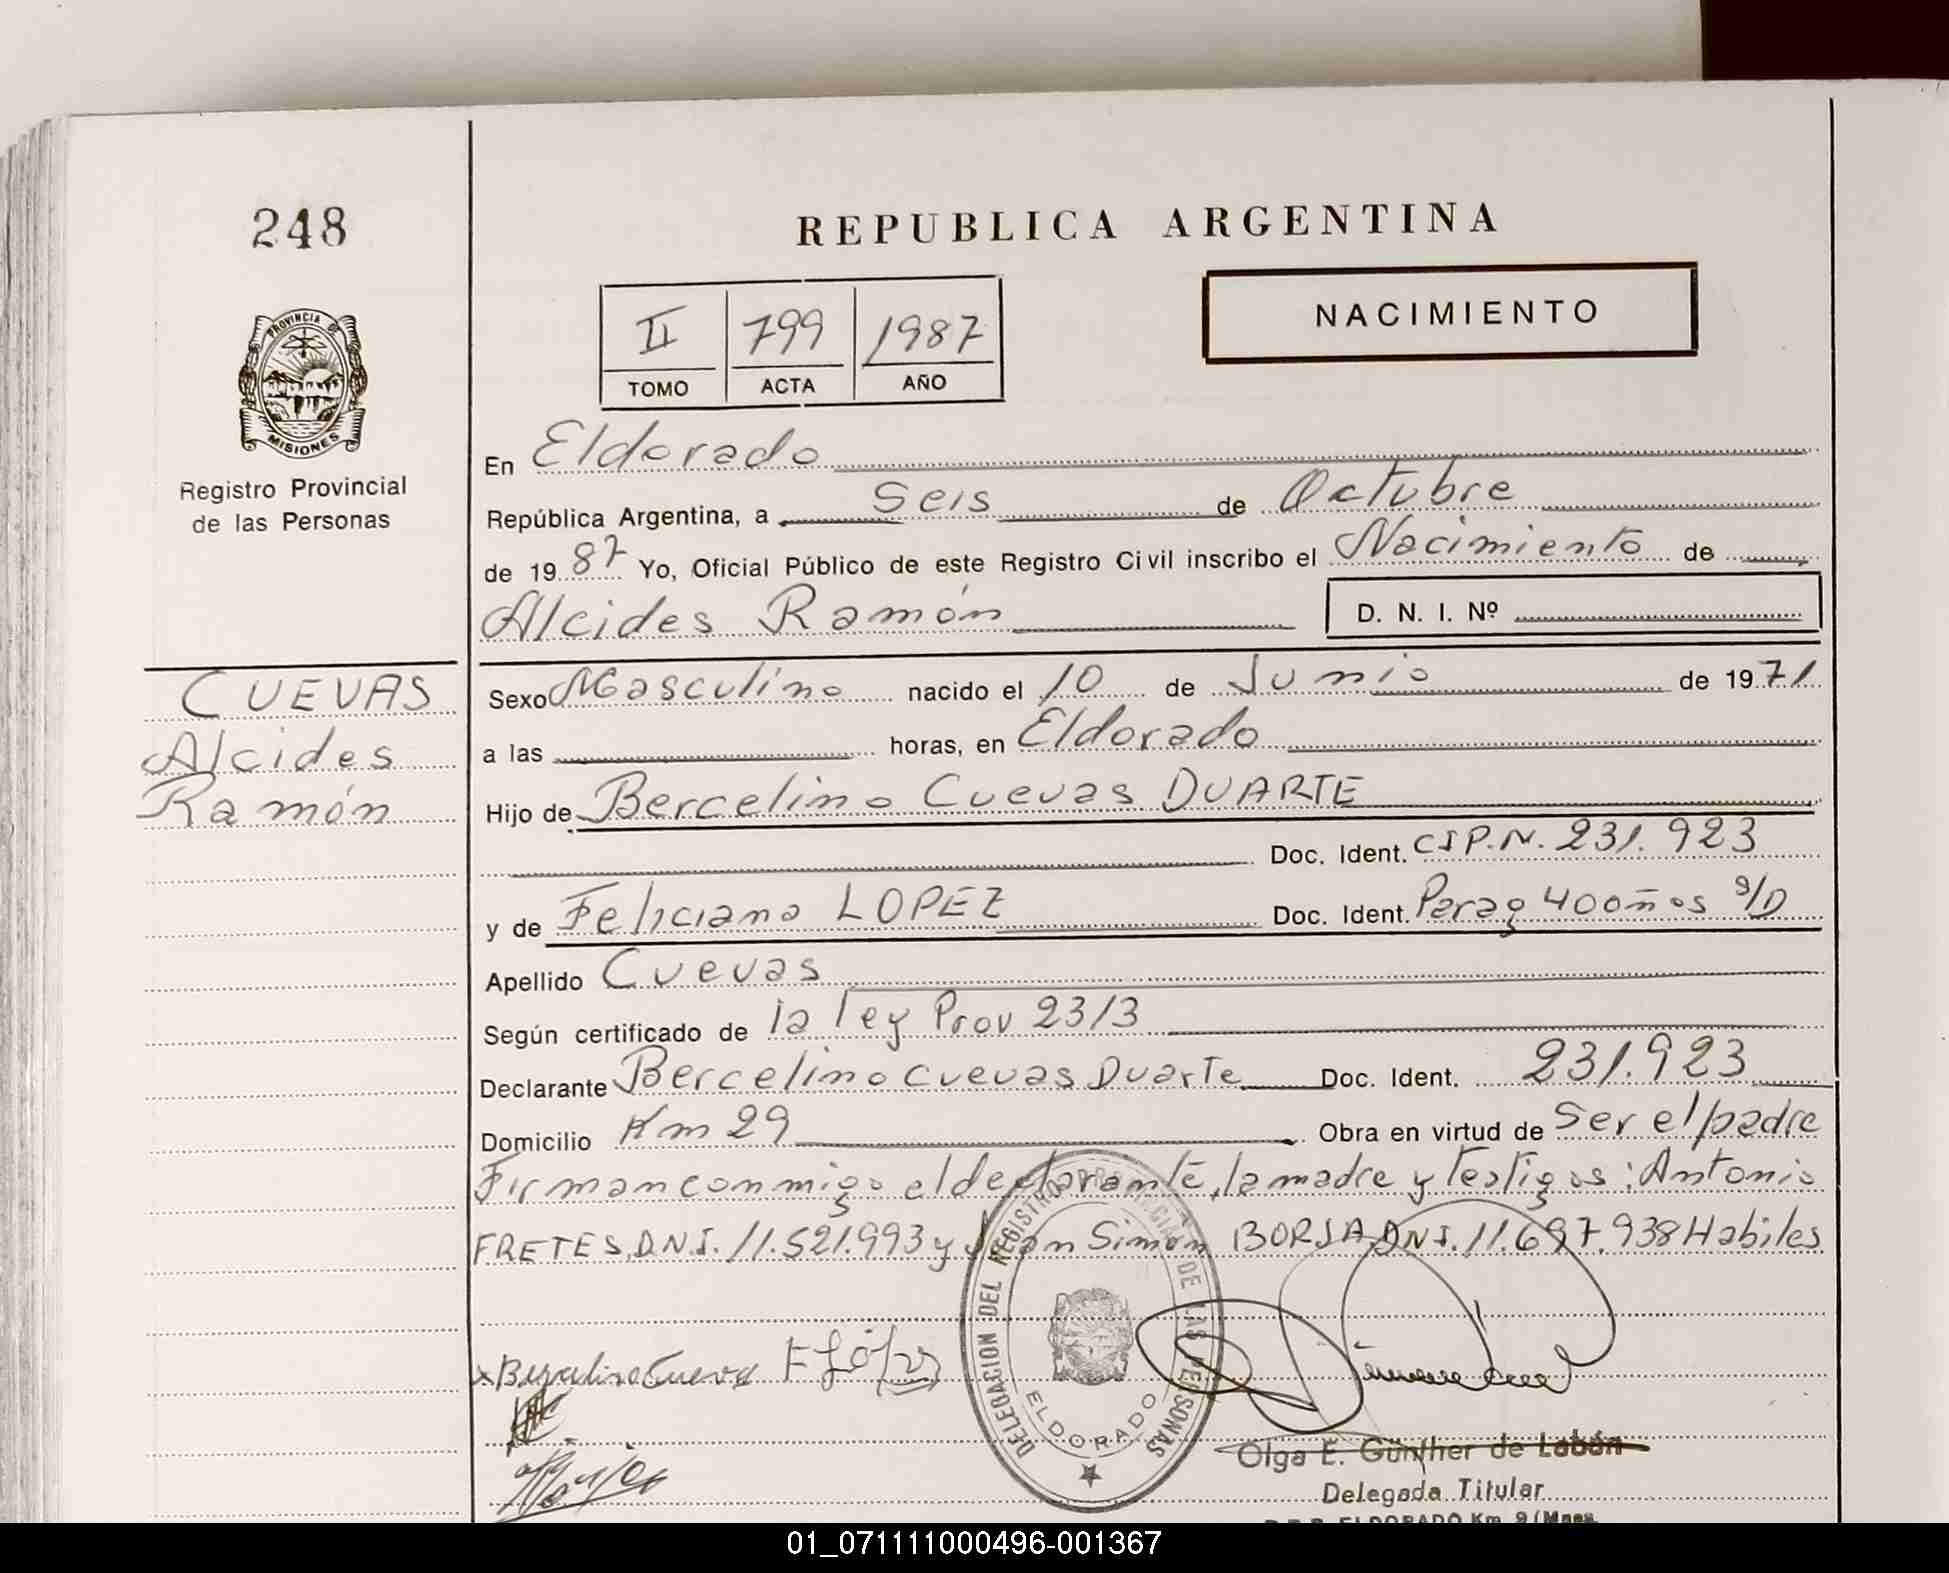 248
REPUBLICA ARGENTINA
NACIMIENTO
II 799 1987
TOMO ACTA AÑO
PROVINCIA DE
MISIONES
Registro Provincial
de las Personas
En Eldorado
República Argentina, a Seis de Octubre
de 1987 Yo, Oficial Público de este Registro Civil inscribo el Nacimiento de
Alcides Ramón D. N. I. Nº
CUEVAS
Alcides
Ramón
Sexo Masculino nacido el 10 de Junio de 1971
a las horas, en Eldorado
Hijo de Bercelino Cuevas DUARTE
Doc. Ident. CIP.N. 231.923
y de Feliciana LOPEZ Doc. Ident. Parag 40 años s/D
Apellido Cuevas
Según certificado de la ley Prov 2313
Declarante Bercelino Cuevas Duarte Doc. Ident. 231.923
Domicilio Km 29 Obra en virtud de Ser el padre
Firman conmigo el declarante, la madre y testigos: Antonio
FRETES, D.N.I. 11.521.993 y Juan Simón BORJA DNI. 11.697.938 Habiles
DELEGACION DEL REGISTRO PROVINCIAL DE LAS PERSONAS
ELDORADO
F López
Olga E. Günther de Labán
Delegada Titular
ELDORADO Km. 9 (Mnes.
01_071111000496-001367